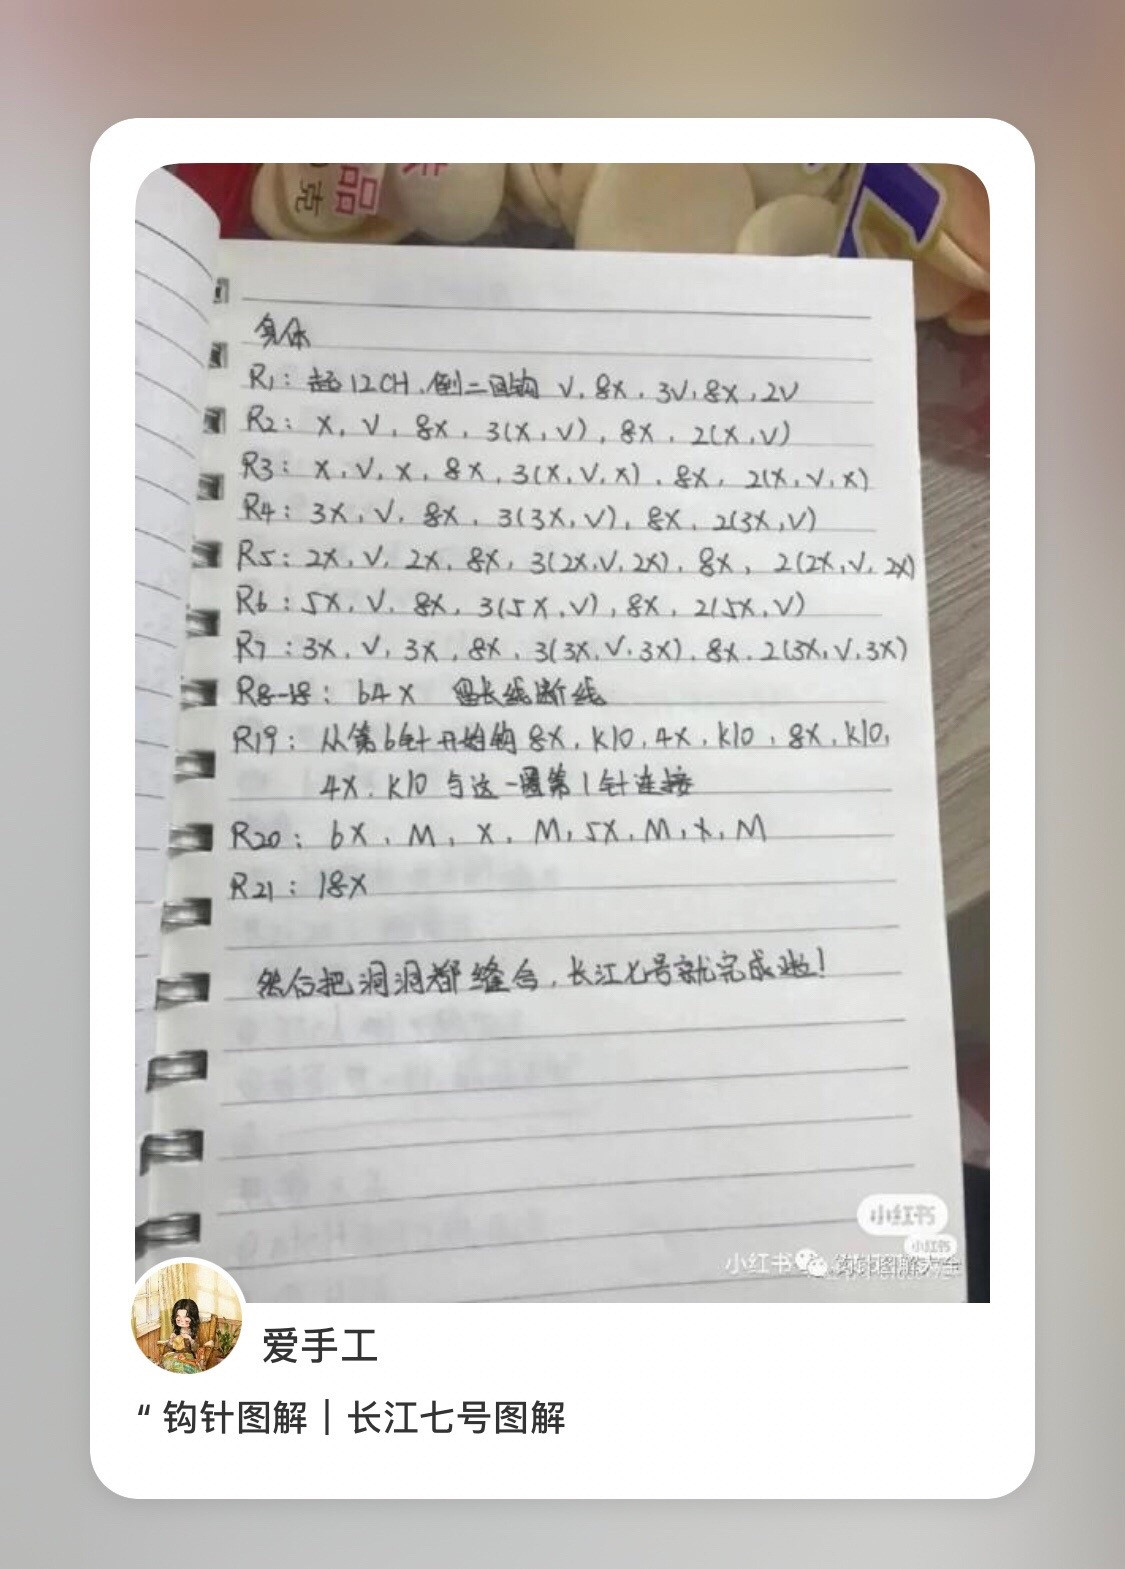 克
品
身体
R1: 起12CH, 倒二回钩 V, 8X, 3V, 8X, 2V
R2: X, V, 8X, 3(X, V), 8X, 2(X, V)
R3: X, V, X, 8X, 3(X, V, X), 8X, 2(X, V, X)
R4: 3X, V, 8X, 3(3X, V), 8X, 2(3X, V)
R5: 2X, V, 2X, 8X, 3(2X, V, 2X), 8X, 2(2X, V, 2X)
R6: 5X, V, 8X, 3(5X, V), 8X, 2(5X, V)
R7: 3X, V, 3X, 8X, 3(3X, V, 3X), 8X, 2(3X, V, 3X)
R8-18: 64X 留长线断线
R19: 从第6针开始钩 8X, K10, 4X, K10, 8X, K10,
4X, K10 与这一圈第1针连接
R20: 6X, M, X, M, 5X, M, X, M
R21: 18X
然后把洞洞都缝合,长江七号就完成啦!
小红书
小红书
小红书 钩针图解大全
爱手工
“ 钩针图解｜长江七号图解